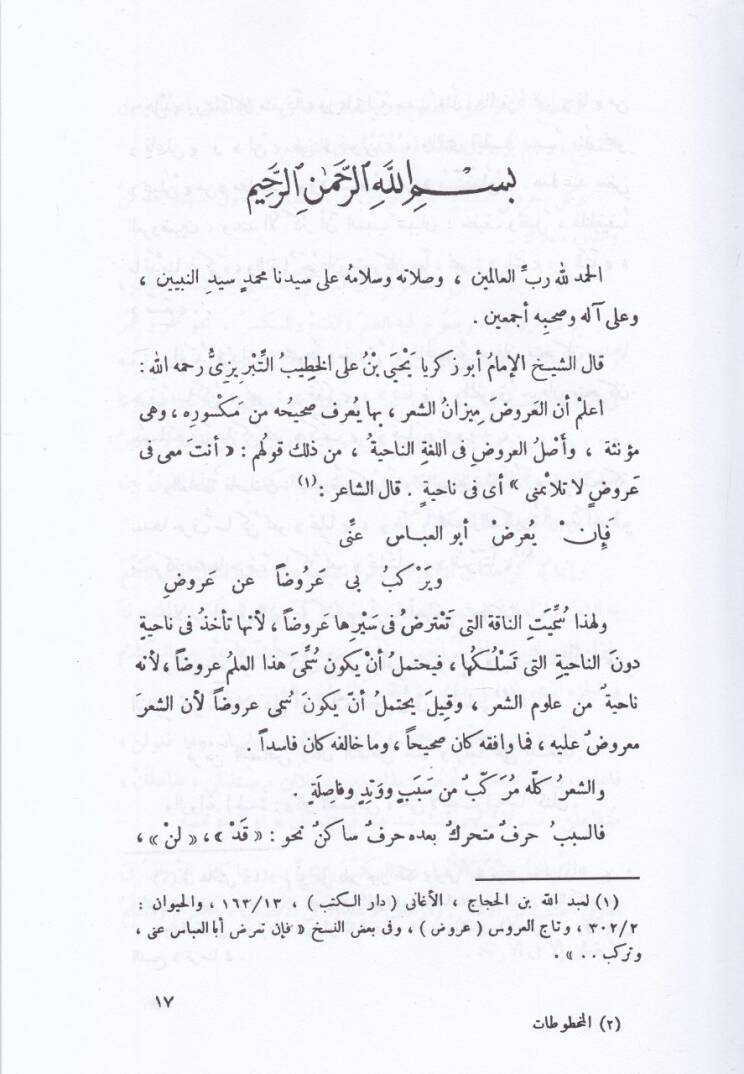 بِسْمِ اللَّهِ الرَّحْمَٰنِ الرَّحِيمِ
الحمد لله ربِّ العالمين ، وصلاته وسلامهُ على سيدنا محمدٍ سيدِ النبيين ،
وعلى آله وصحبِه أجمعين .
قال الشيخ الإمامُ أبو زكريا يَحْيَى بْنُ على الخطِيبُ التِّبْرِيزىُّ رحمه الله :
اعلم أن العَروض مِيزانُ الشعر ، بها يُعرف صحيحُه من مَكْسُورِه ، وهى
مؤنثة ، وأَصْلُ العروضِ فى اللغةِ الناحيةُ ، من ذلك قولُهم : « أنتَ معى فى
عَروضٍ لا تلائمنى » أى فى ناحيةٍ . قال الشاعر :(١)
فَإِنْ يَعْرِضْ أبو العباس عنِّى
ويَرْكَبُ بى عَرُوضاً عن عَروضِ
ولهذا سُمِّيَتِ الناقة التى تَعْترض فى سَيْرِها عَروضاً ، لأنها تأخذُ فى ناحيةٍ
دونَ الناحيةِ التى تَسْلُكُها ، فيحتملُ أنْ يكون سُمِّى هذا العلمُ عروضاً ، لأنه
ناحيةٌ من علوم الشعر ، وقيلَ يحتملُ أنْ يكون سُمى عروضاً لأن الشعرَ
معروضٌ عليه ، فما وافقه كان صحيحاً ، وما خالفه كان فاسداً .
والشعرُ كلّه مُرَكّبٌ من سَبَبٍ ووَتِدٍ وفاصلَةٍ .
فالسببُ حرفٌ متحركٌ بعده حرفٌ ساكنٌ نحو : « قَدْ » ، « لَنْ » ،
(١) لعبد الله بن الحجاج ، الأغانى ( دار الكتب ) ، ١٦٣/١٣ ، والحيوان :
٣٠٢/٢ ، وتاج العروس ( عروض ) ، وفى بعض النسخ « فإن تعرض أبا العباس عنى ،
وتركب . . » .
١٧
(٢) المخطوطات